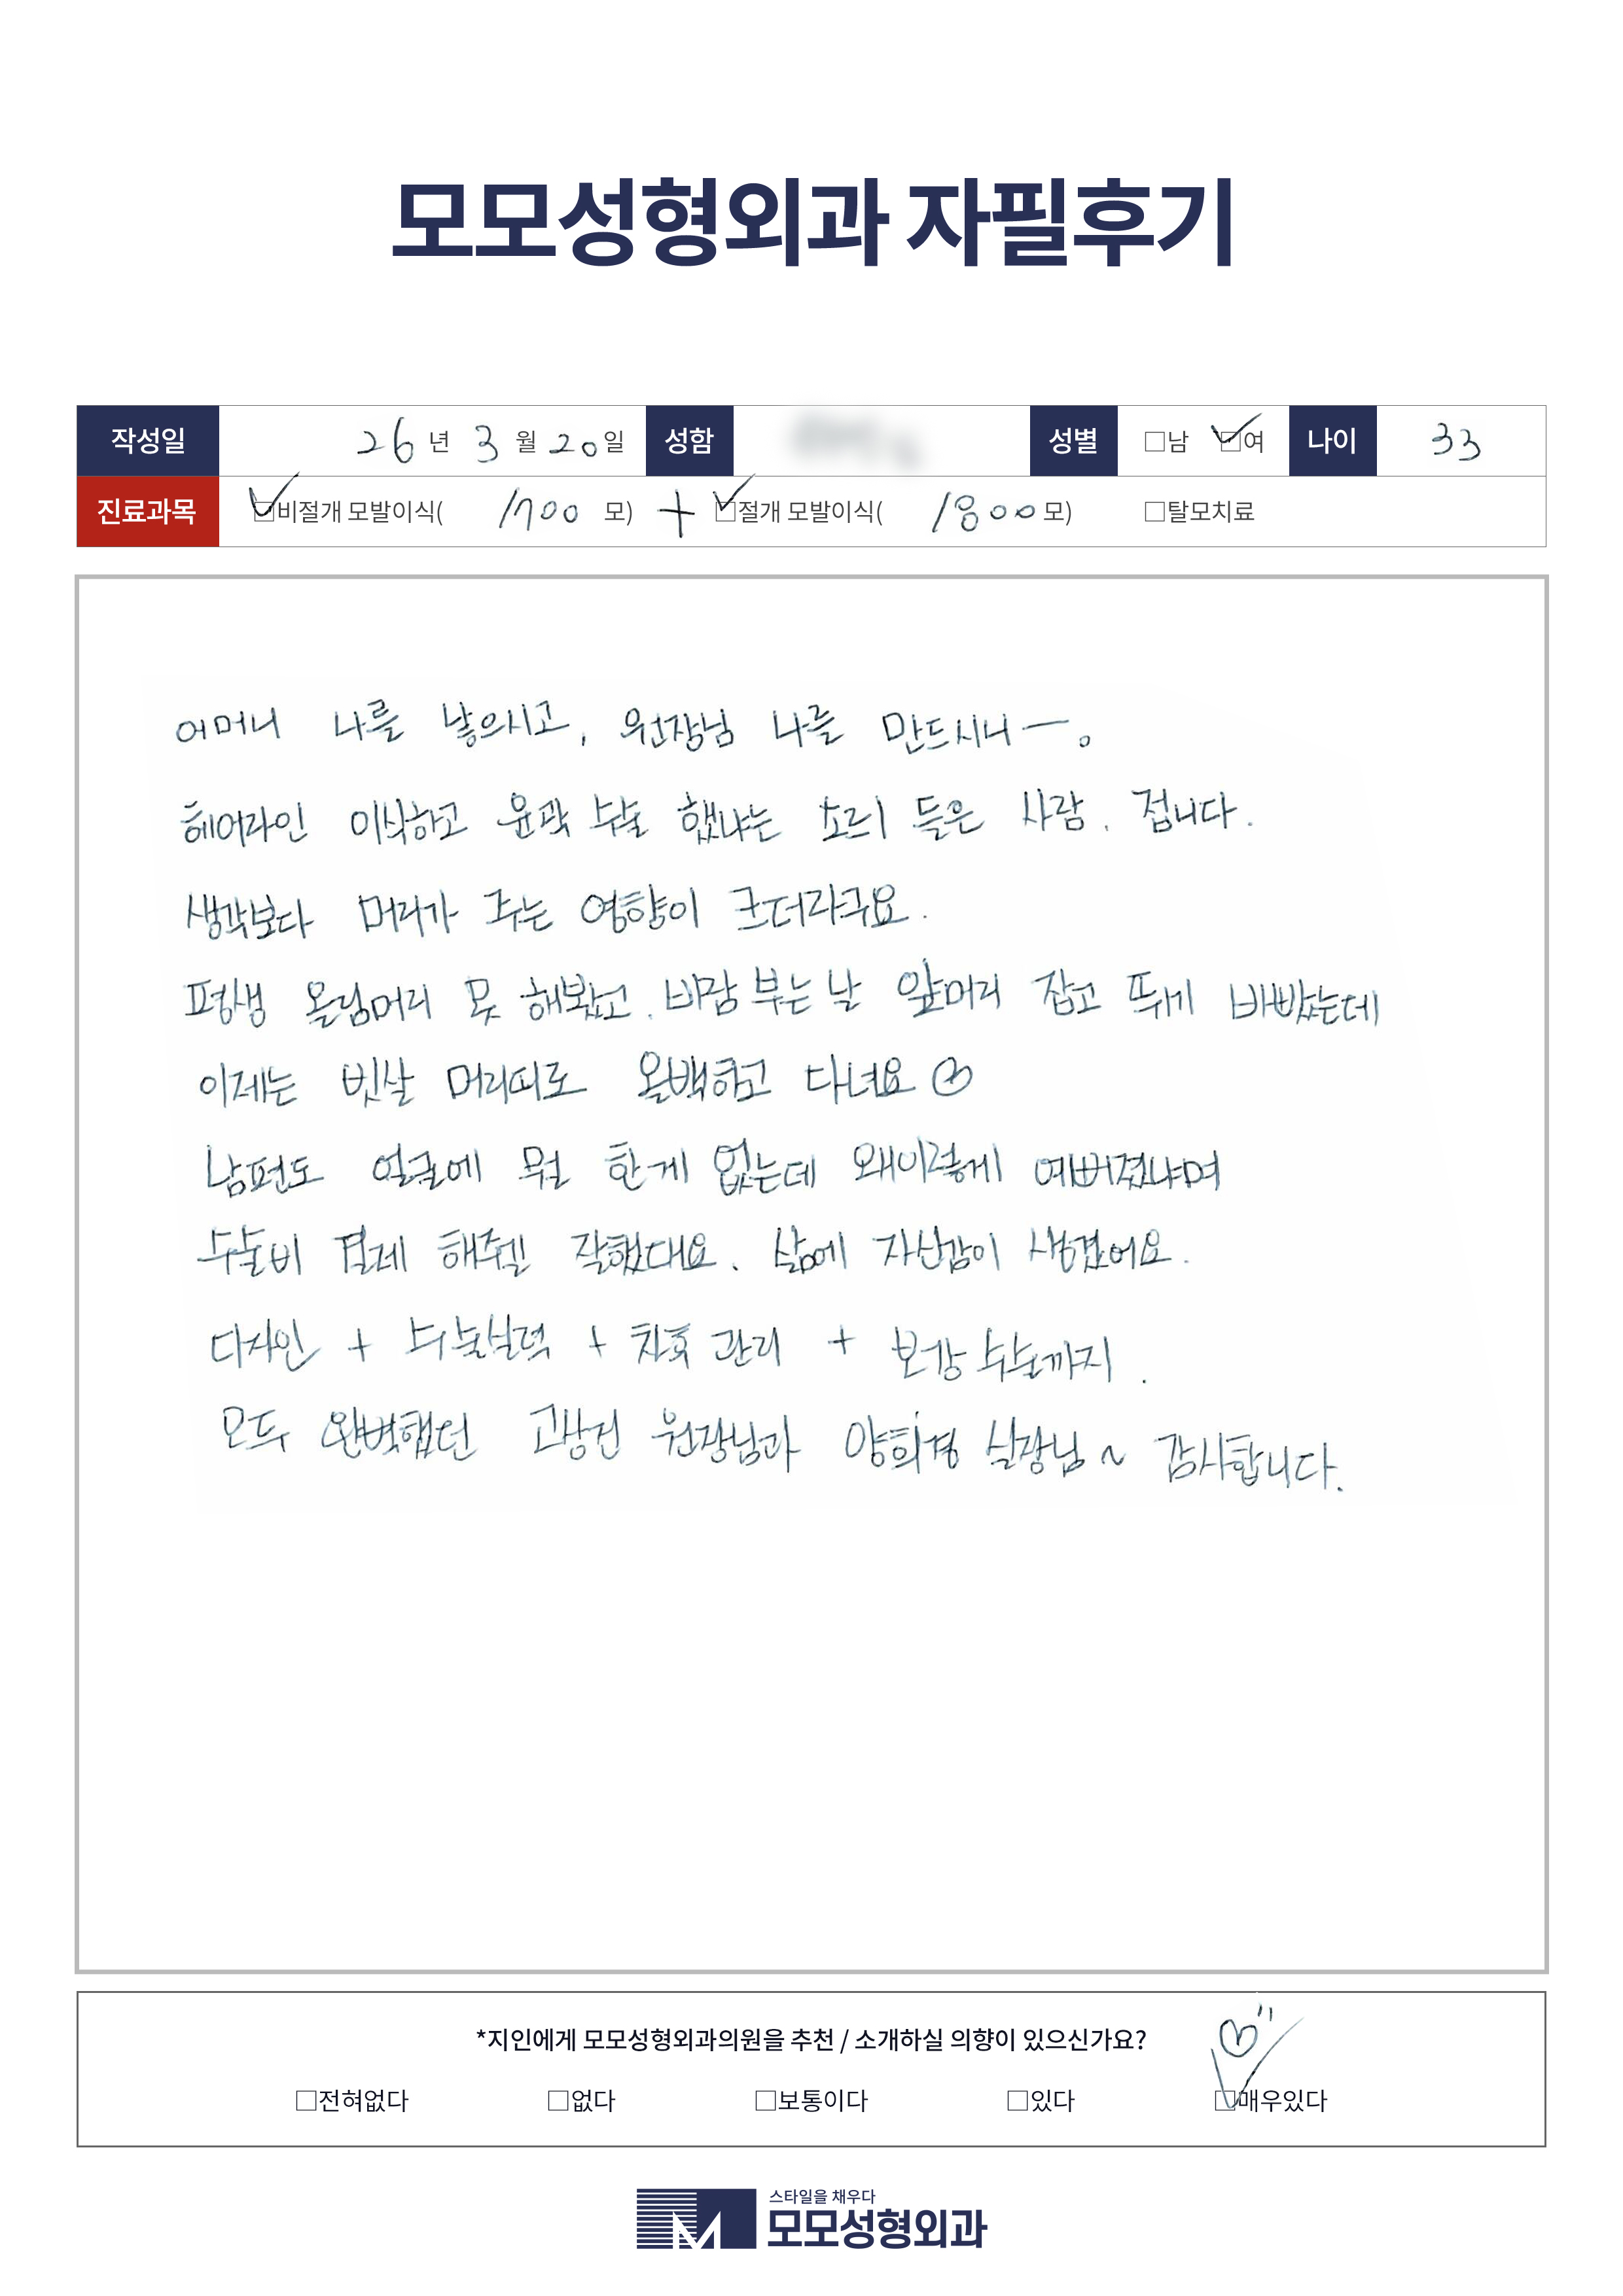 모모성형외과 자필후기
작성일 26 년 3 월 20 일 성함 성별 □남 □여 나이 33
진료과목 □비절개 모발이식( 1700 모) + □절개 모발이식( 1800 모) □탈모치료
어머니 나를 낳으시고, 원장님 나를 만드시니ㅡ。
헤어라인 이식하고 윤곽 수술 했냐는 소리 들은 사람. 접니다.
생각보다 머리가 주는 영향이 크더라구요.
평생 올림머리 못 해봤고. 바람 부는 날 앞머리 잡고 뛰기 바빴는데
이제는 빗살 머리띠로 올백하고 다녀요
남편도 얼굴에 뭘 한게 없는데 왜이렇게 예뻐졌냐며
수술비 결제 해주길 잘했대요. 삶에 자신감이 생겼어요.
디자인 + 수술실력 + 치료 관리 + 보강 수술까지.
모두 완벽했던 고상진 원장님과 양희경 실장님~ 감사합니다.
*지인에게 모모성형외과의원을 추천 / 소개하실 의향이 있으신가요?
□전혀없다 □없다 □보통이다 □있다 □매우있다
스타일을 채우다
모모성형외과